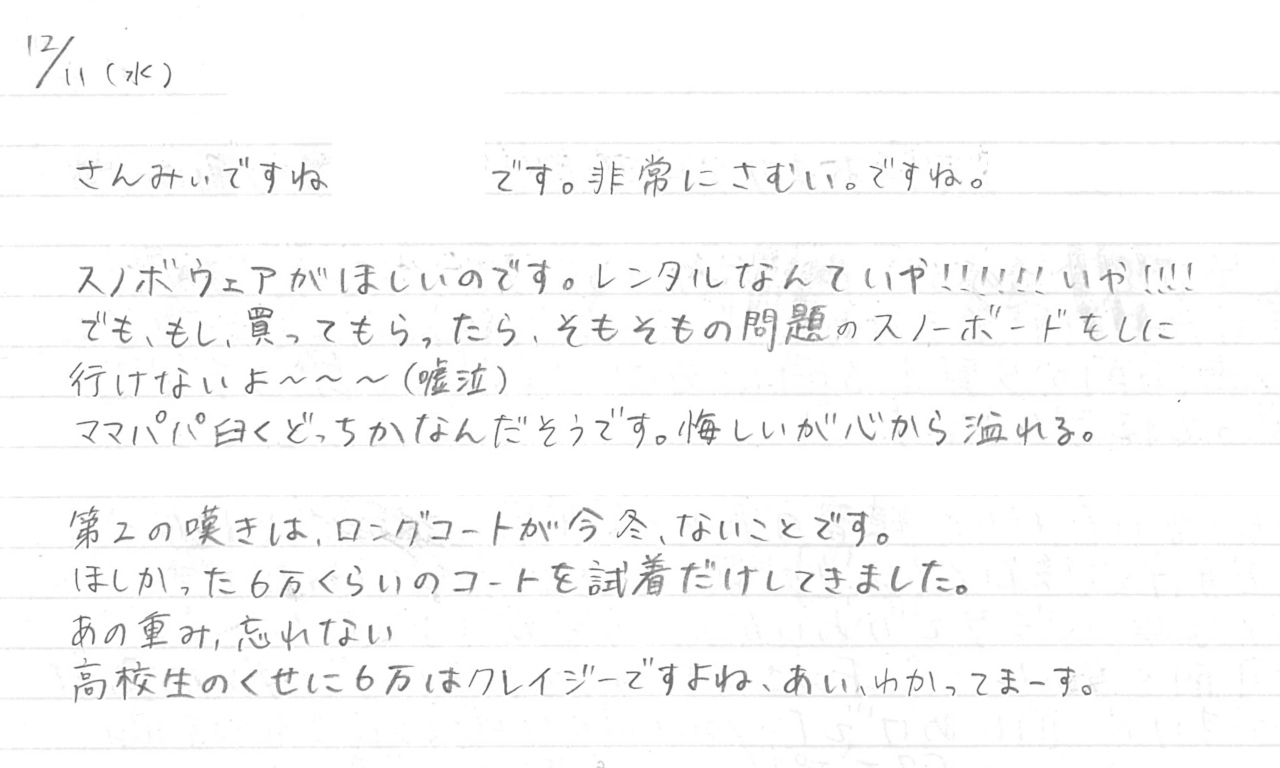 12/11(水)
さんみぃですね です。非常にさむい。ですね。
スノボウェアがほしいのです。レンタルなんていや!!!!!!いや!!!!
でも、もし、買ってもらったら、そもそもの問題のスノーボードをしに
行けないよ〜〜〜(嘘泣)
ママパパ臼くどっちかなんだそうです。悔しいが心から溢れる。
第2の嘆きは、ロングコートが今冬、ないことです。
ほしかった6万くらいのコートを試着だけしてきました。
あの重み,忘れない
高校生のくせに6万はクレイジーですよね、あい、わかってまーす。